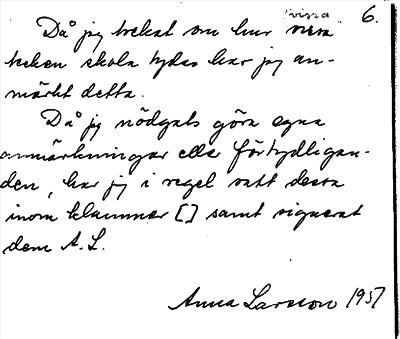 6.
vissa
Då jag tvekat om hur vissa
tecken skola tydas har jag an-
märkt detta.
Då jag nödgats göra egna
anmärkningar eller förtydligan-
den, har jag i regel satt dessa
inom klammer [] samt signerat
dem A. L.
Anna Larsson 1957